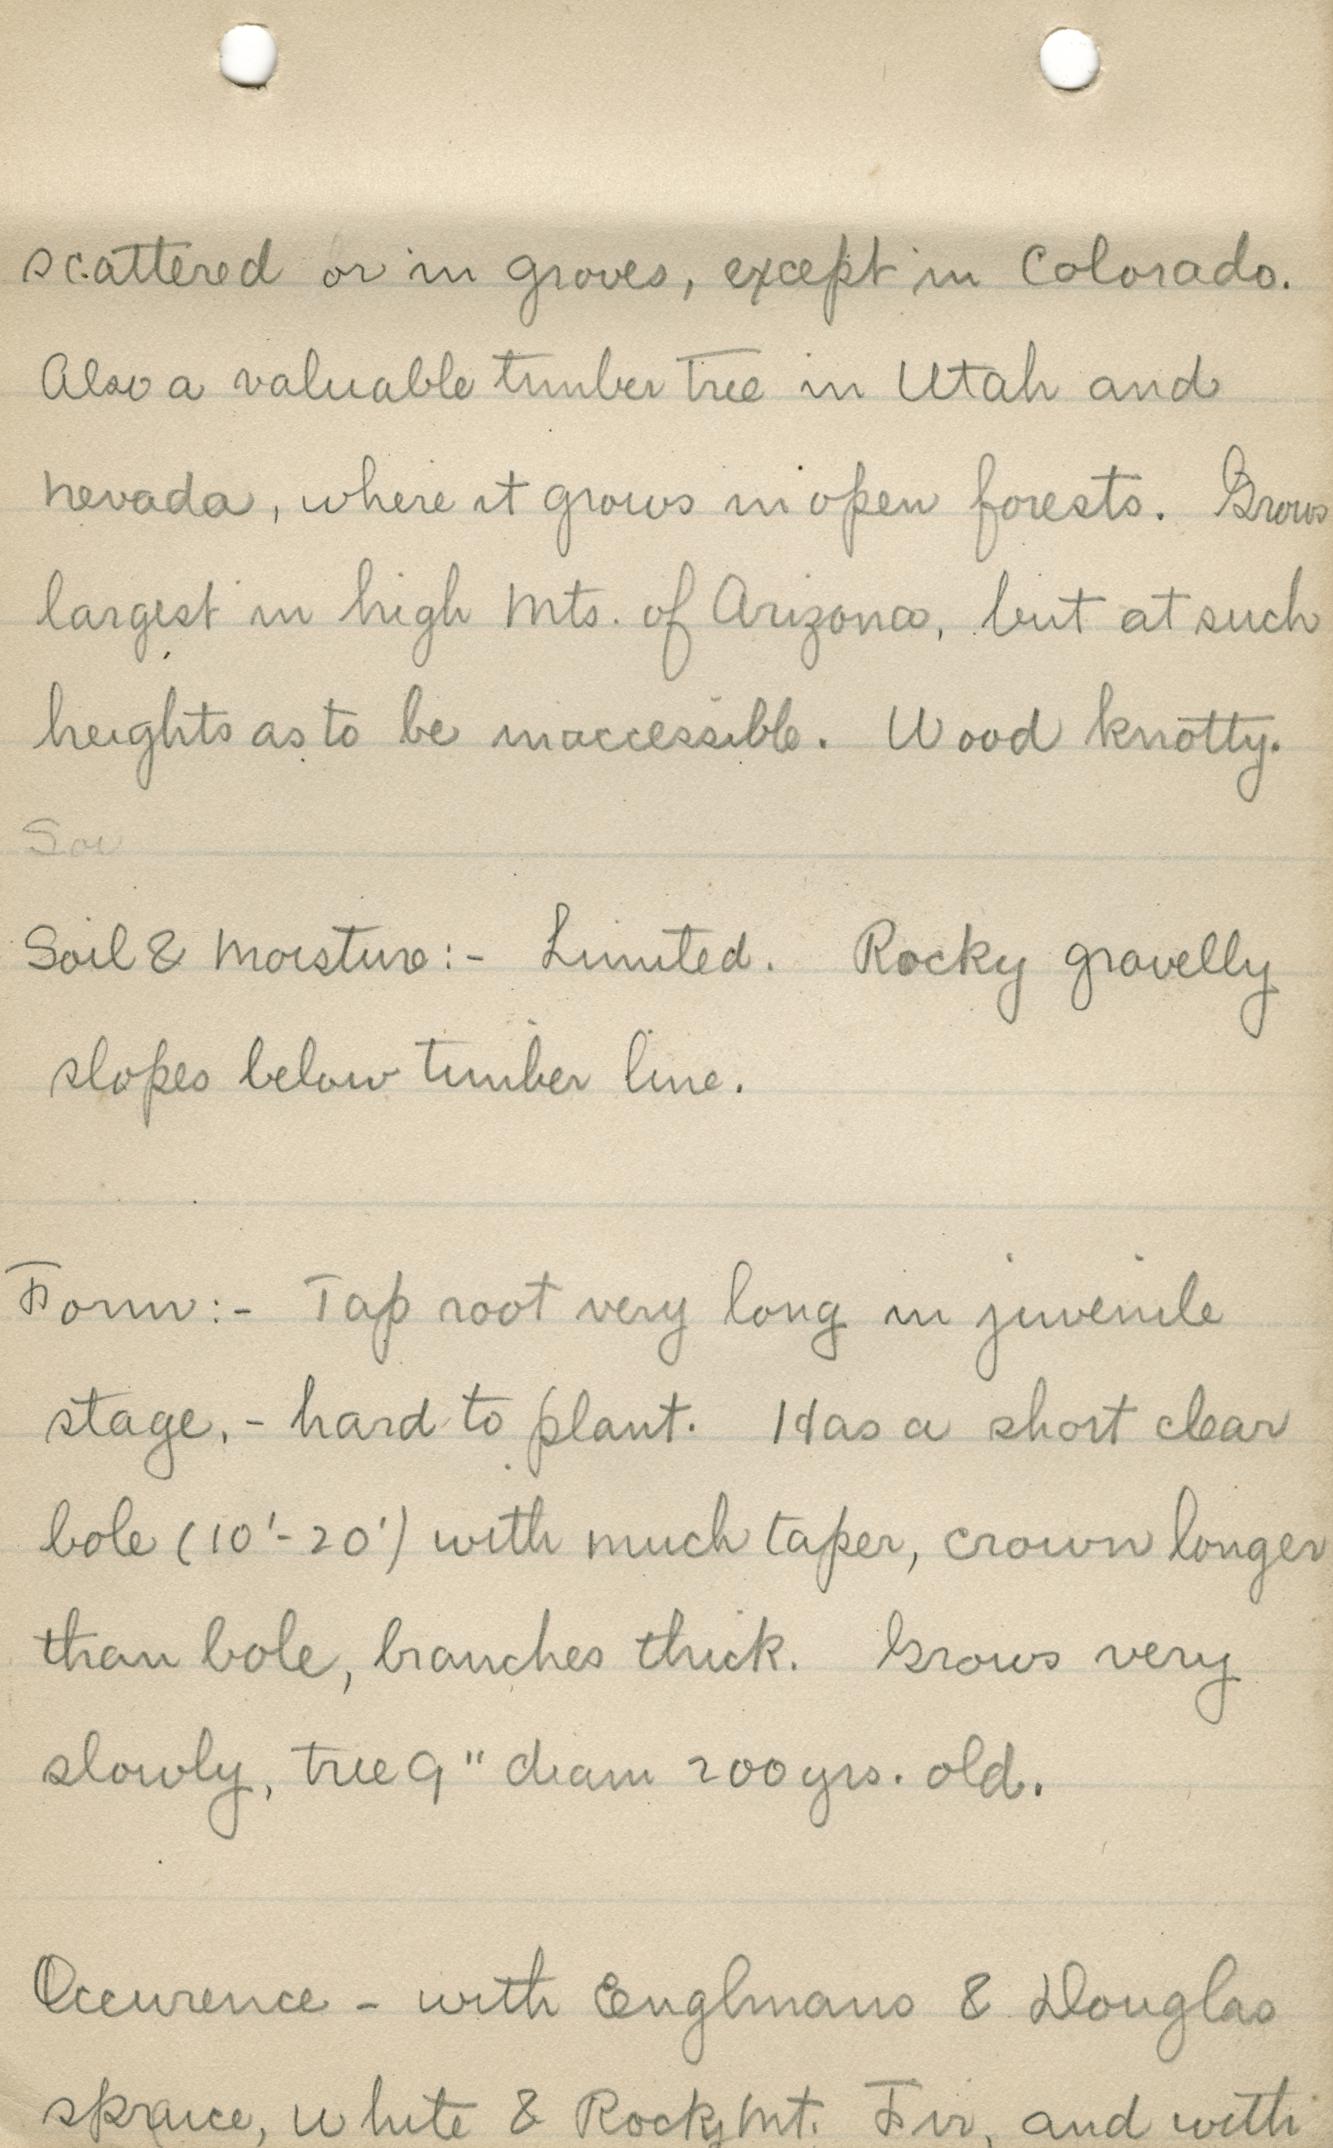 scattered or in groves, except in Colorado.
Also a valuable timber tree in Utah and
Nevada, where it grows in open forests. Grows
largest in high Mts. of Arizona, but at such
heights as to be inaccessible. Wood knotty.
Soi
Soil & Moisture:- Limited. Rocky gravelly
slopes below timber line.
Form:- Tap root very long in juvenile
stage, - hard to plant. Has a short clear
bole (10'-20') with much taper, crown longer
than bole, branches thick. Grows very
slowly, tree 9" diam 200 yrs. old.
Occurence - with Englmans & Douglas
spruce, White & Rocky Mt. Fir, and with